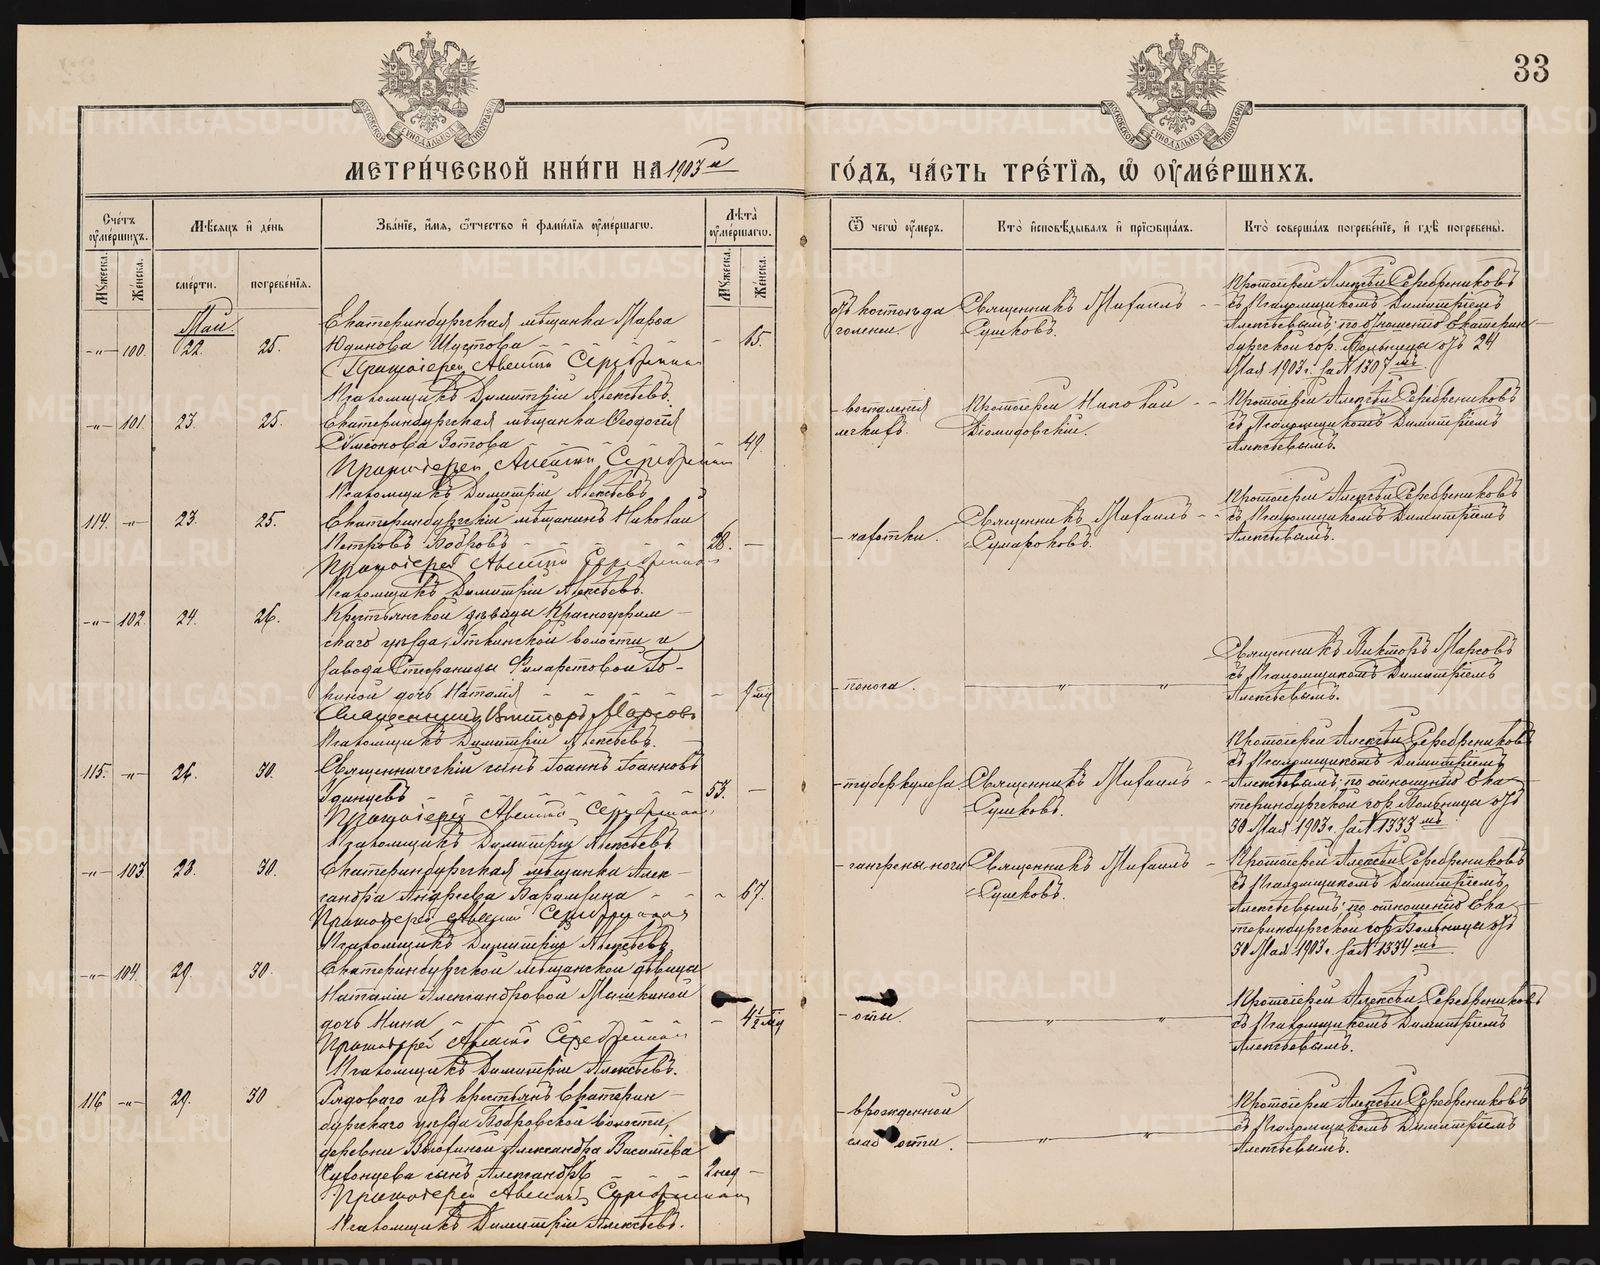 33
МЕТРИ́ЧЕСКОЙ КНИ́ГИ НА 1903й
ГО́ДЪ, ЧА́СТЬ ТРЕ́ТІѦ, Ѽ ОУ҆МЕ́РШИХЪ.
Сче́тъ оу҆ме́ршихъ.
Мѣ́сѧцъ и҆ де́нь
Зва́нїе, и҆́мѧ, ѻ҆́тчество и҆ фами́лїѧ оу҆ме́ршагѡ.
Лѣ́та оу҆ме́ршагѡ.
Ѿ чегѡ̀ оу҆́меръ.
Кто̀ и҆сповѣ́дывалъ и҆ прїѡбща́лъ.
Кто̀ соверша́лъ погребе́нїе, и҆ гдѣ̀ погребены̀.
Мꙋ́жеска.
Же́нска.
сме́рти.
погребе́нїѧ.
Мꙋ́жеска.
Же́нска.
Май
-„- 100. 22. 25.
Екатеринбургская мѣщанка Марѳа
Шустова - 65.
Протоіерей Алексій Серебренниковъ
Псаломщикъ Димитрій Алексѣевъ.
голени.
Священникъ Михаилъ
Сушковъ.
Протоіерей Алексѣй Серебрениковъ
съ Псаломщикомъ Димитріемъ
Алексѣевымъ, по отношенію Екатерин-
бургской гор. Больницы отъ 24
Мая 1903 г. за № 1307мъ
-„- 101. 23. 25.
Екатеринбургская мѣщанка Ѳеодосія
Симеонова Зотова - 49.
Протоіерей Алексій Серебренниковъ
Псаломщикъ Димитрій Алексѣевъ
- воспаленія
легкихъ.
Протоіерей Николай
Діомидовскій.
Протоіерей Алексѣй Серебрениковъ
съ Псаломщикомъ Димитріемъ
Алексѣевымъ.
114. -„- 23. 25.
Екатеринбургскій мѣщанинъ Николай
Петровъ Бобровъ 28. -
Протоіерей Алексій Серебренниковъ
Псаломщикъ Димитрій Алексѣевъ.
- чахотки.
Священникъ Михаилъ
Протоіерей Алексѣй Серебрениковъ
съ Псаломщикомъ Димитріемъ
Алексѣевымъ.
-„- 102. 24. 26.
Крестьянской дѣвицы Красноуфим-
скаго уѣзда, Уткинской волости и
завода Стефаниды Филаретовой
дочь Наталія - 1 мц
Священникъ Викторъ Марсовъ
Псаломщикъ Димитрій Алексѣевъ.
- поноса.
„ „
Священникъ Викторъ Марсовъ
съ Псаломщикомъ Димитріемъ
Алексѣевымъ.
115. -„- 26. 30.
Священническій сынъ Іоаннъ Іоанновъ
Удинцевъ 53. -
Протоіерей Алексій Серебренниковъ
Псаломщикъ Димитрій Алексѣевъ
- туберкулеза
Священникъ Михаилъ
Сушковъ.
Протоіерей Алексѣй Серебрениковъ
съ Псаломщикомъ Димитріемъ
Алексѣевымъ; по отношенію Ека-
теринбургской гор. Больницы отъ
30 Мая 1903 г. за № 1333мъ
-„- 103. 28. 30.
Екатеринбургская мѣщанка Алек-
сандра Андреева - 67.
Протоіерей Алексій Серебренниковъ
Псаломщикъ Димитрій Алексѣевъ.
- гангрены ноги
Священникъ Михаилъ
Сушковъ.
Протоіерей Алексѣй Серебрениковъ
съ Псаломщикомъ Димитріемъ
Алексѣевымъ; по отношенію Ека-
теринбургской гор. Больницы отъ
30 Мая 1903 г. за № 1334мъ
-„- 104. 29. 30.
Екатеринбургской мѣщанской дѣвицы
Наталіи Александровой Мышкиной
дочь Нина - 4½ мц
Протоіерей Алексій Серебренниковъ
Псаломщикъ Димитрій Алексѣевъ.
- оспы.
„ „
Протоіерей Алексѣй Серебрениковъ
съ Псаломщикомъ Димитріемъ
Алексѣевымъ.
116 -„- 29. 30
Рядоваго изъ крестьянъ Екатерин-
бургскаго уѣзда Бобровской волости,
деревни Александра Василіева
сынъ Александръ 2 нед -
Протоіерей Алексій Серебренниковъ
Псаломщикъ Димитрій Алексѣевъ.
- врожденной
слабости.
„ „
Протоіерей Алексѣй Серебрениковъ
съ Псаломщикомъ Димитріемъ
Алексѣевымъ.
METRIKI.GASO-URAL.RU